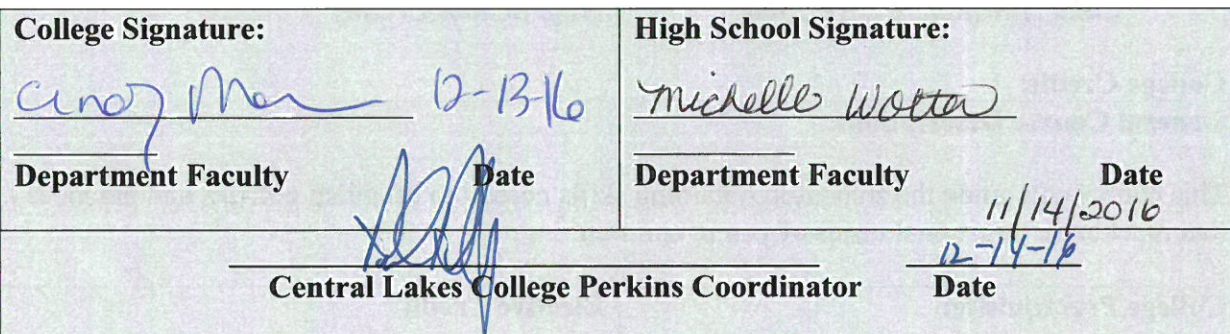 College Signature:
12-13-16
Department Faculty Date
High School Signature:
Michelle Wotta
Department Faculty Date
11/14/2016
12-14-16
Central Lakes College Perkins Coordinator Date